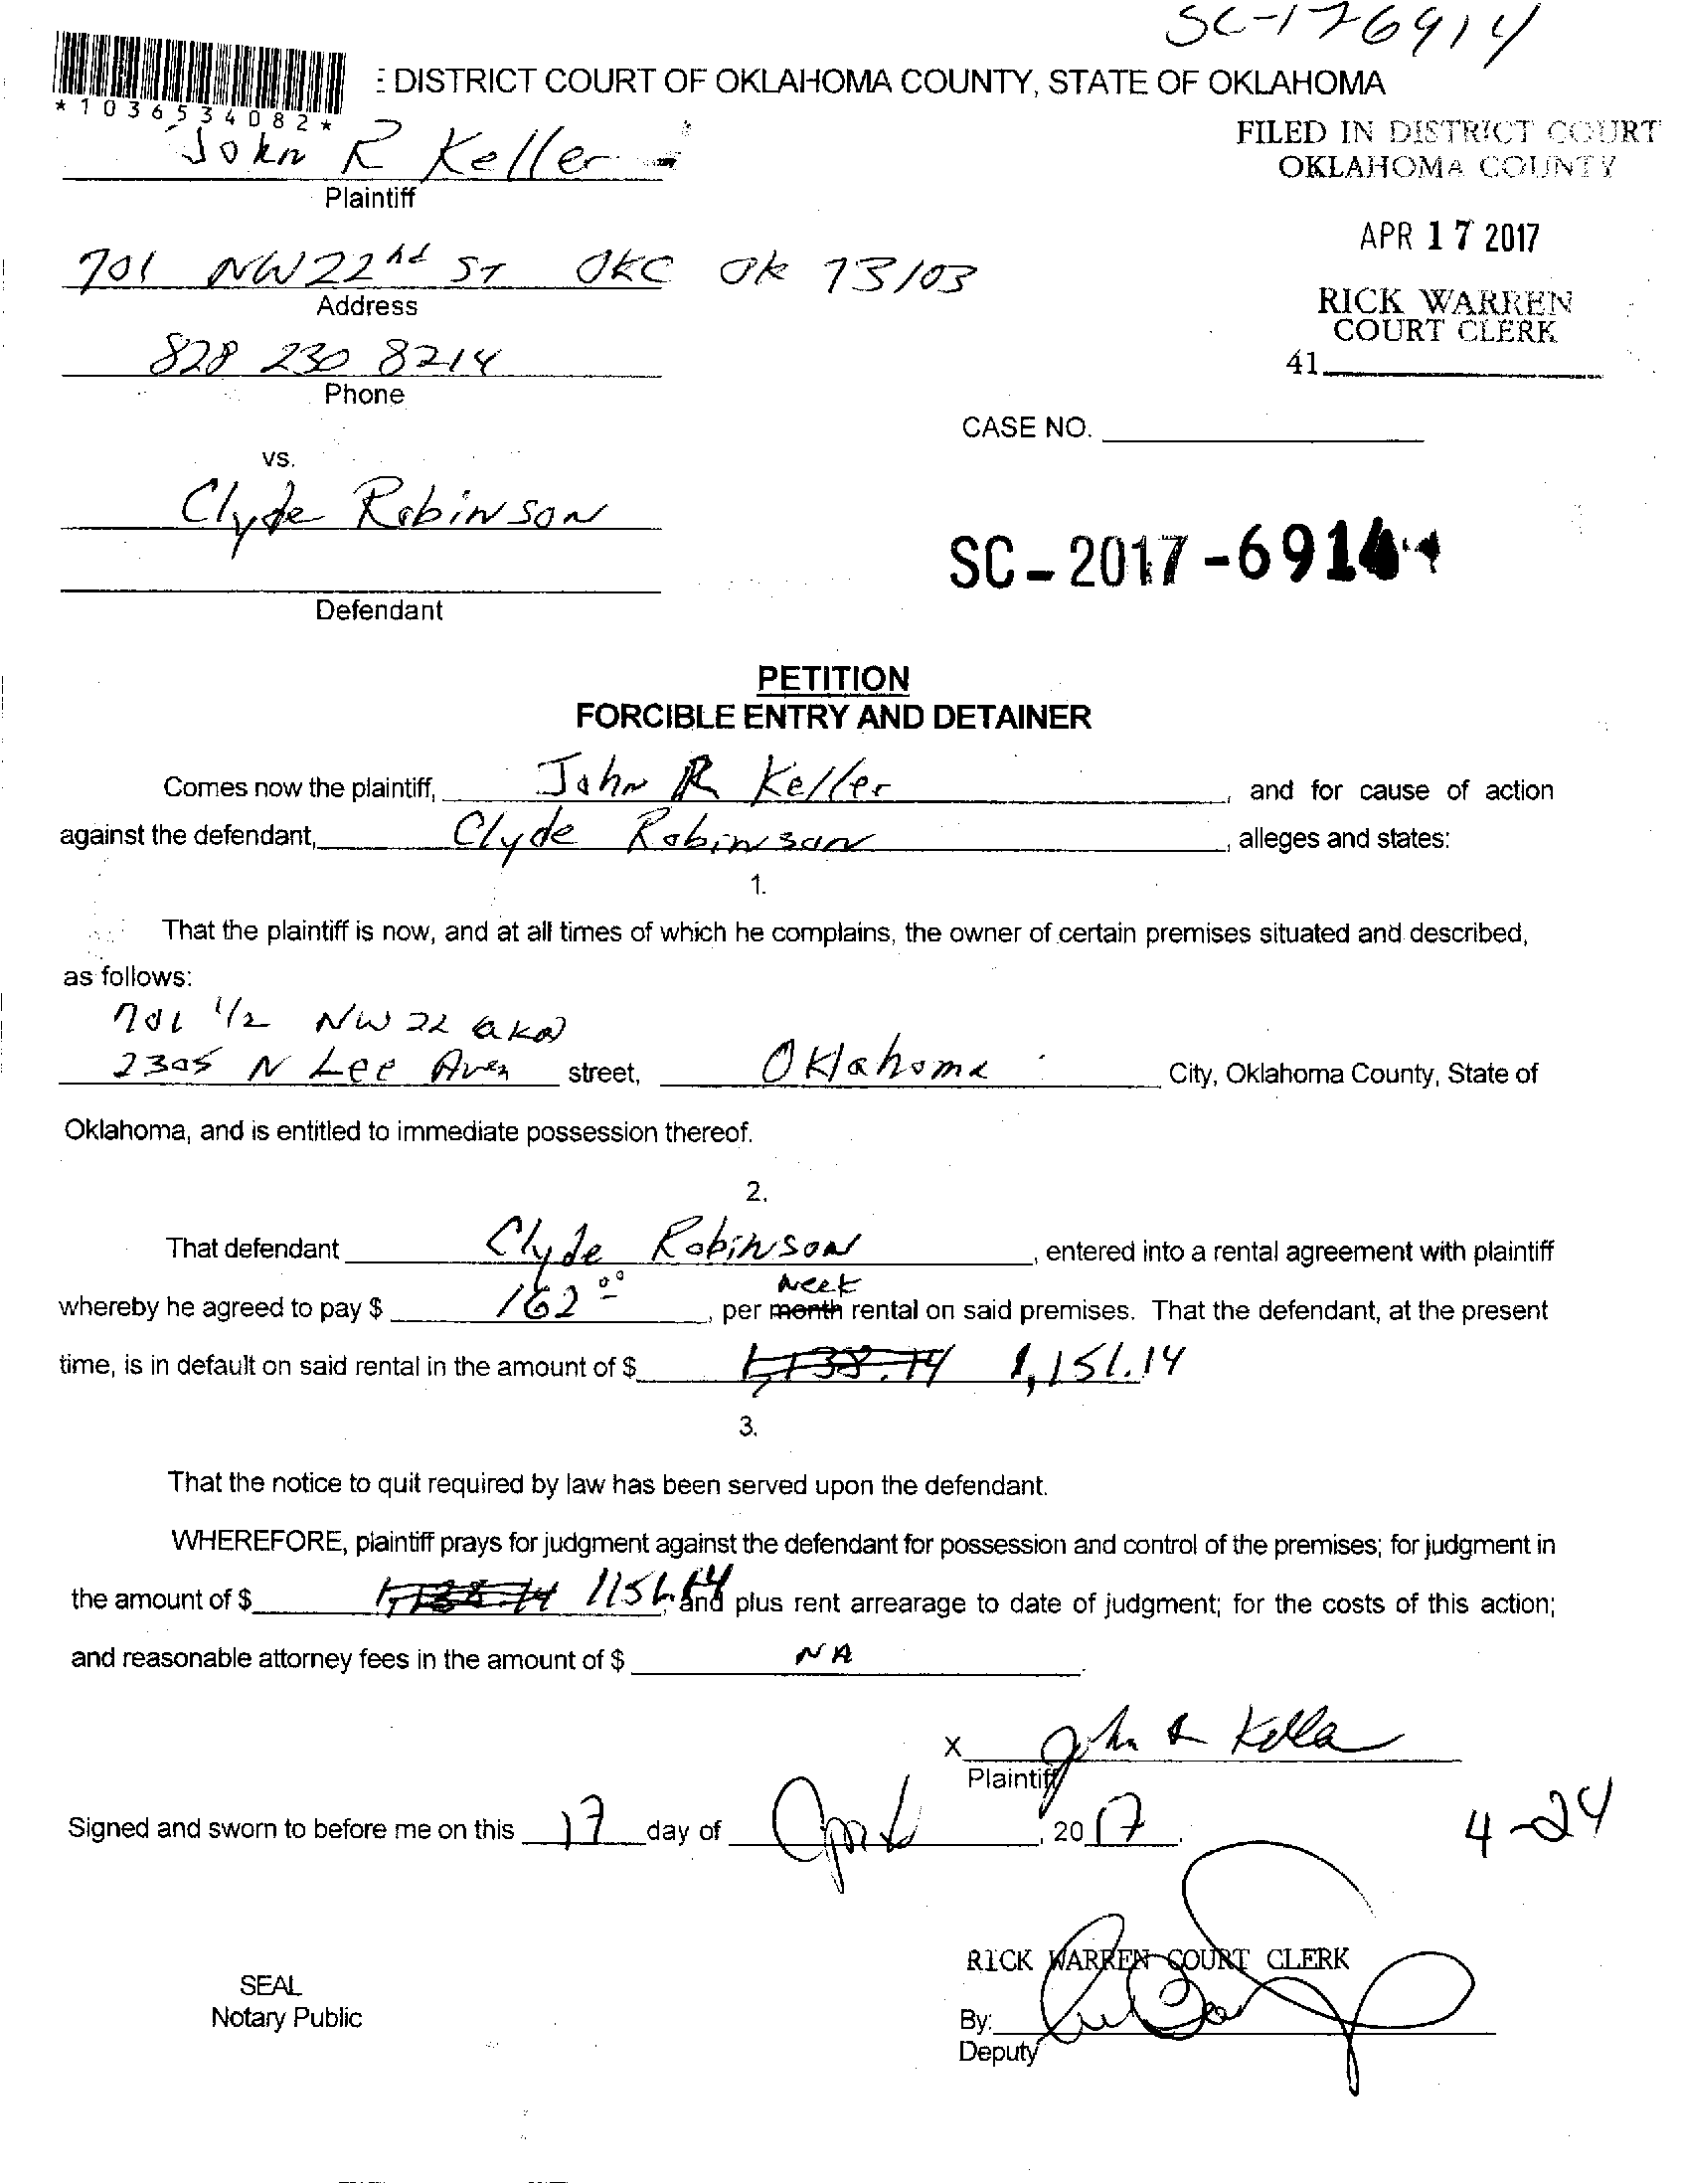 SC-176914
*1036534082*
DISTRICT COURT OF OKLAHOMA COUNTY, STATE OF OKLAHOMA
FILED IN DISTRICT COURT
OKLAHOMA COUNTY
John R Keller
Plaintiff
APR 17 2017
701 NW 22nd ST OKC OK 73103
Address
RICK WARREN
COURT CLERK
41
828 230 8214
Phone
CASE NO.
vs.
Clyde Robinson
SC-2017-6914
Defendant
PETITION
FORCIBLE ENTRY AND DETAINER
Comes now the plaintiff, John R Keller, and for cause of action
against the defendant, Clyde Robinson, alleges and states:
1.
That the plaintiff is now, and at all times of which he complains, the owner of certain premises situated and described,
as follows:
701 1/2 NW 22 aka
2305 N Lee Aven street, Oklahoma City, Oklahoma County, State of
Oklahoma, and is entitled to immediate possession thereof.
2.
That defendant Clyde Robinson, entered into a rental agreement with plaintiff
week
whereby he agreed to pay $ 162 00, per month rental on said premises. That the defendant, at the present
time, is in default on said rental in the amount of $ 1,138.14 1,151.14
3.
That the notice to quit required by law has been served upon the defendant.
WHEREFORE, plaintiff prays for judgment against the defendant for possession and control of the premises; for judgment in
the amount of $ 1,138.14 1151.14 and plus rent arrearage to date of judgment; for the costs of this action;
and reasonable attorney fees in the amount of $ NA.
X John R Keller
Plaintiff
Signed and sworn to before me on this 17 day of April, 2017.
4-24
RICK WARREN COURT CLERK
SEAL
Notary Public
By:
Deputy